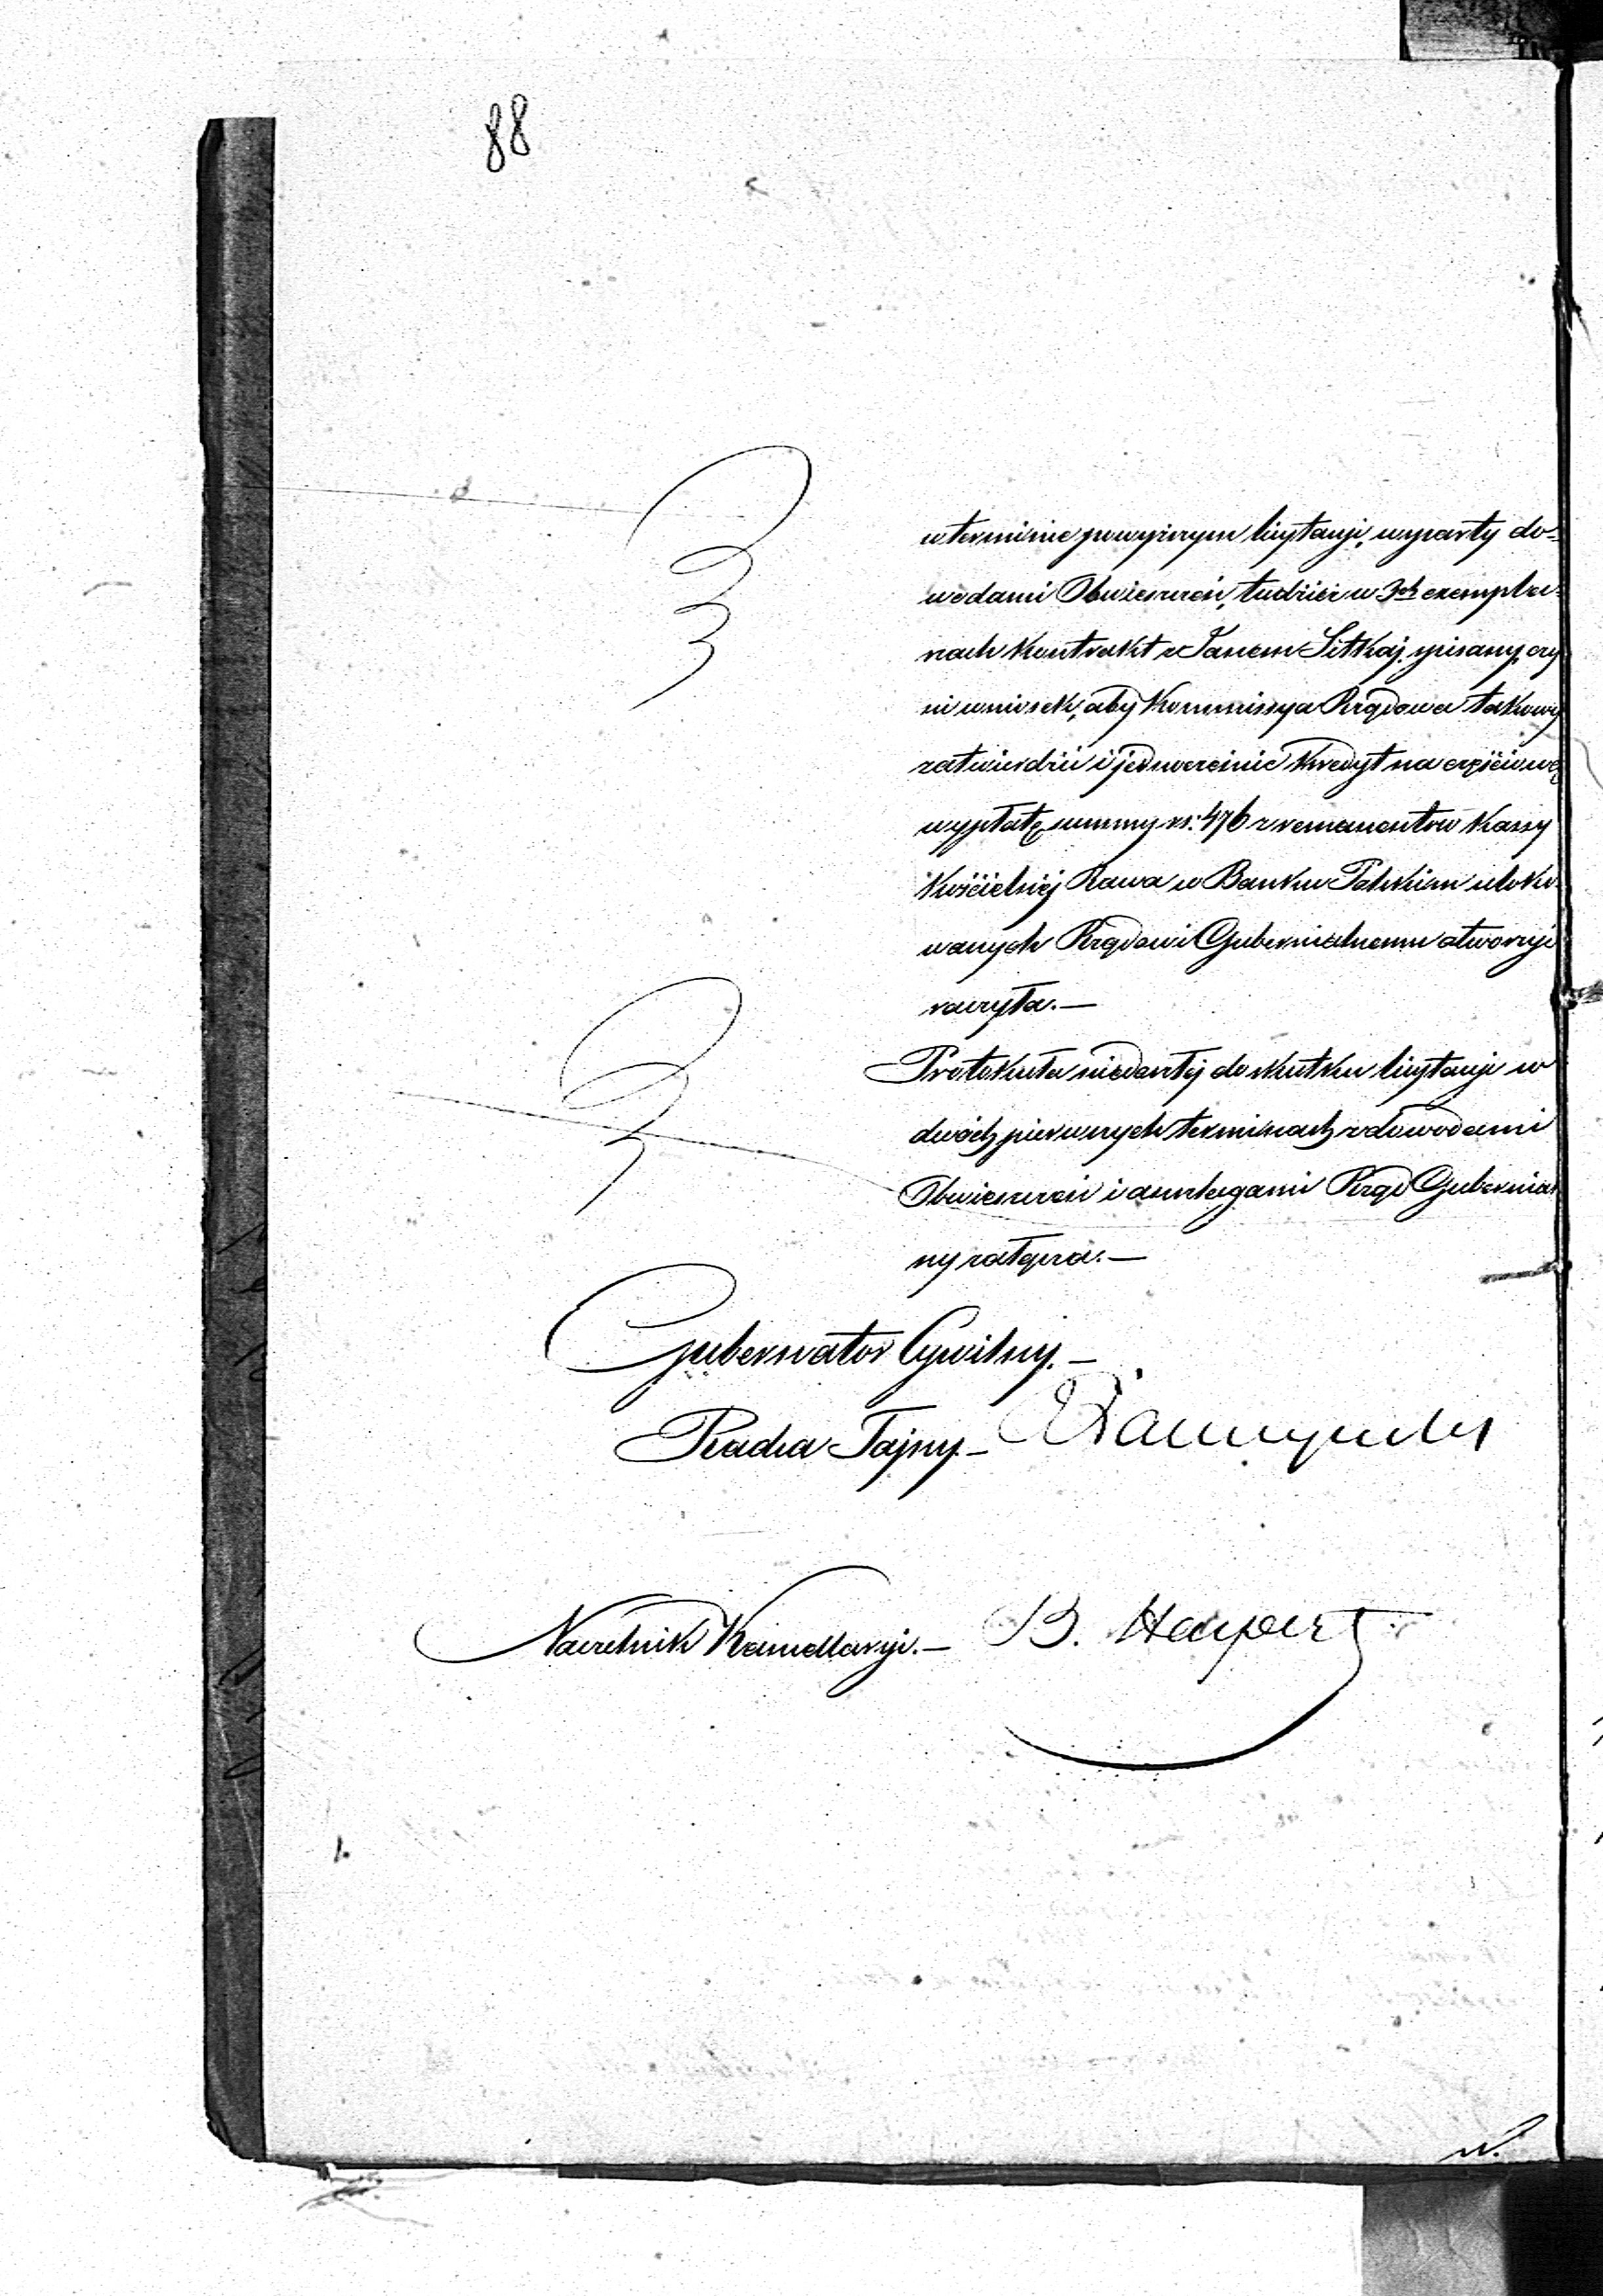 88
w terminie powyższym licytacji, wsparty do-
wodami Obwieszczeń, tudzież w 3ch exempla-
rzach Kontrakt z Janem Sitkaj. spisany, czy
ni wniosek, aby Kommissya Rządowa takowy
zatwierdzić i jednocześnie Kredyt na częściową
wypłatę summy rs: 476 z remanentów Kassy
Kościelnéj Rawa w Banku Polskim uloko-
wanych Rządowi Gubernialnemu otworzyć
raczyła.—
Protokuła niedoszłéj do skutku licytacji w
dwóch pierwszych terminach z dowodami
Obwieszczeń i annlagami Rząd Gubernial
ny załącza.—
Gubernator Cywilny.—
Radca Tajny—
Naczelnik Kancellaryi.— B. Halpert